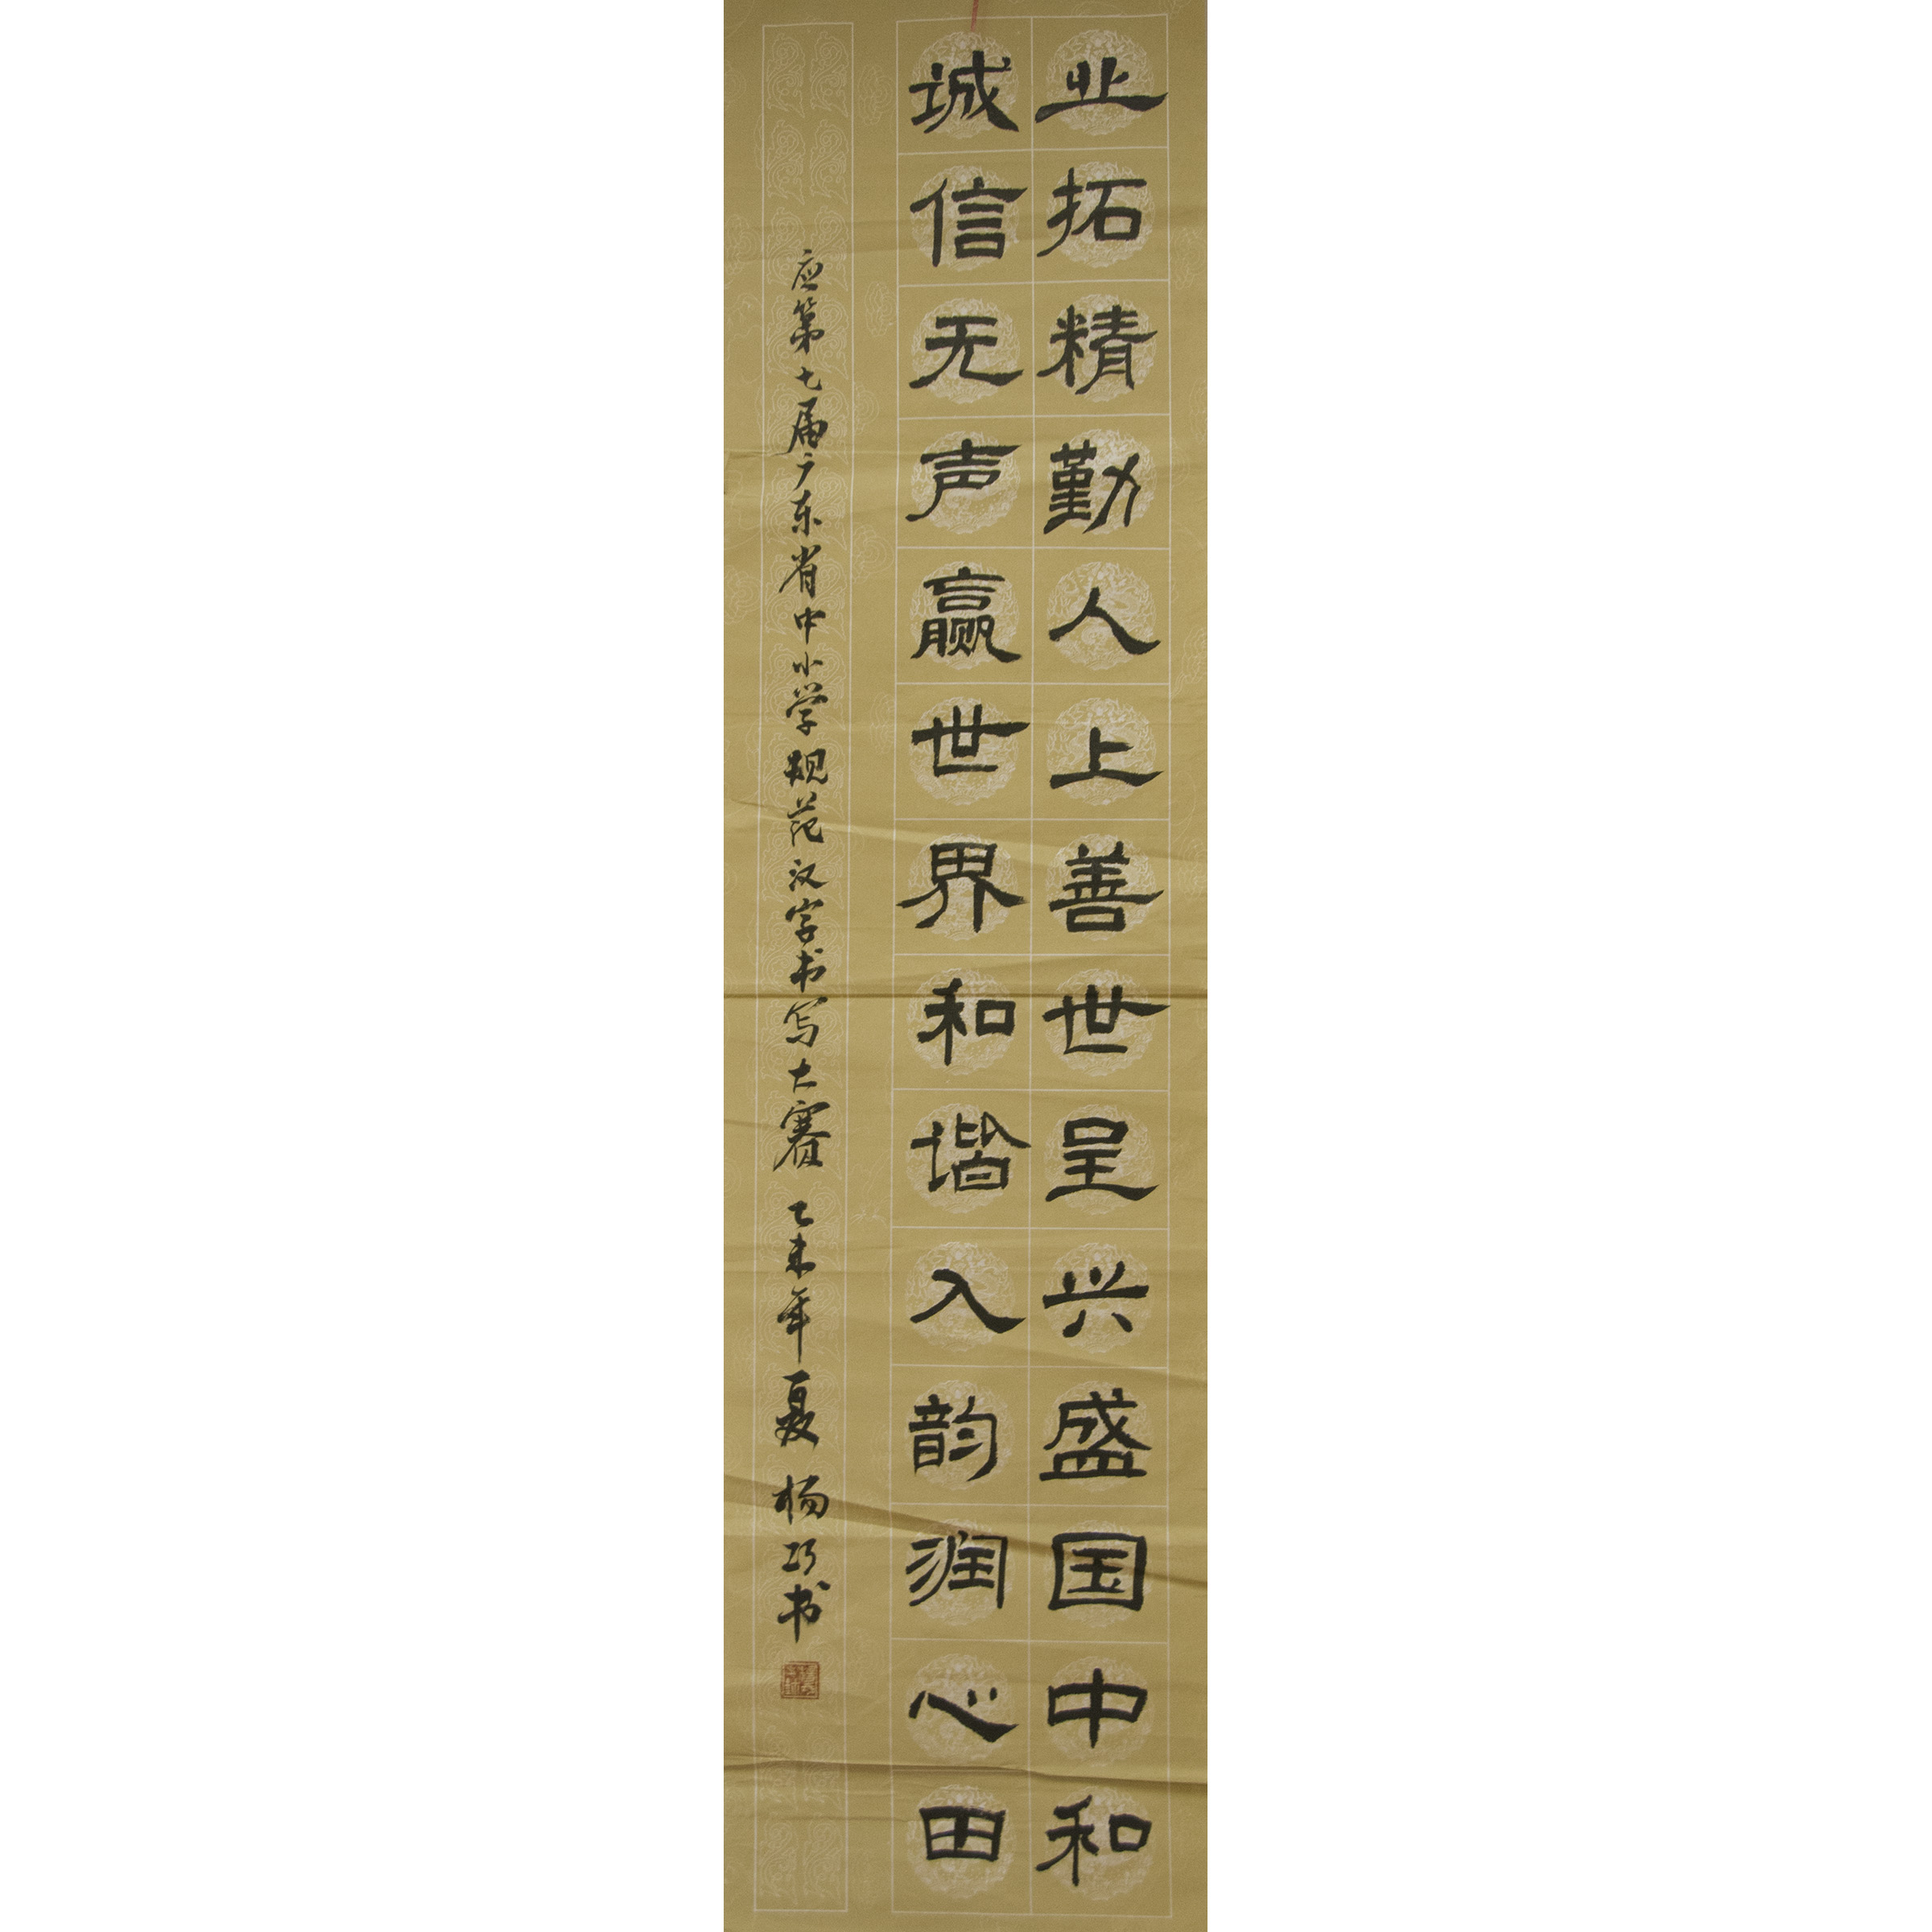 业拓精勤人上善世呈兴盛国中和
诚信无声赢世界和谐入韵润心田
应第七届广东省中小学规范汉字书写大赛 乙未年夏 杨巧书